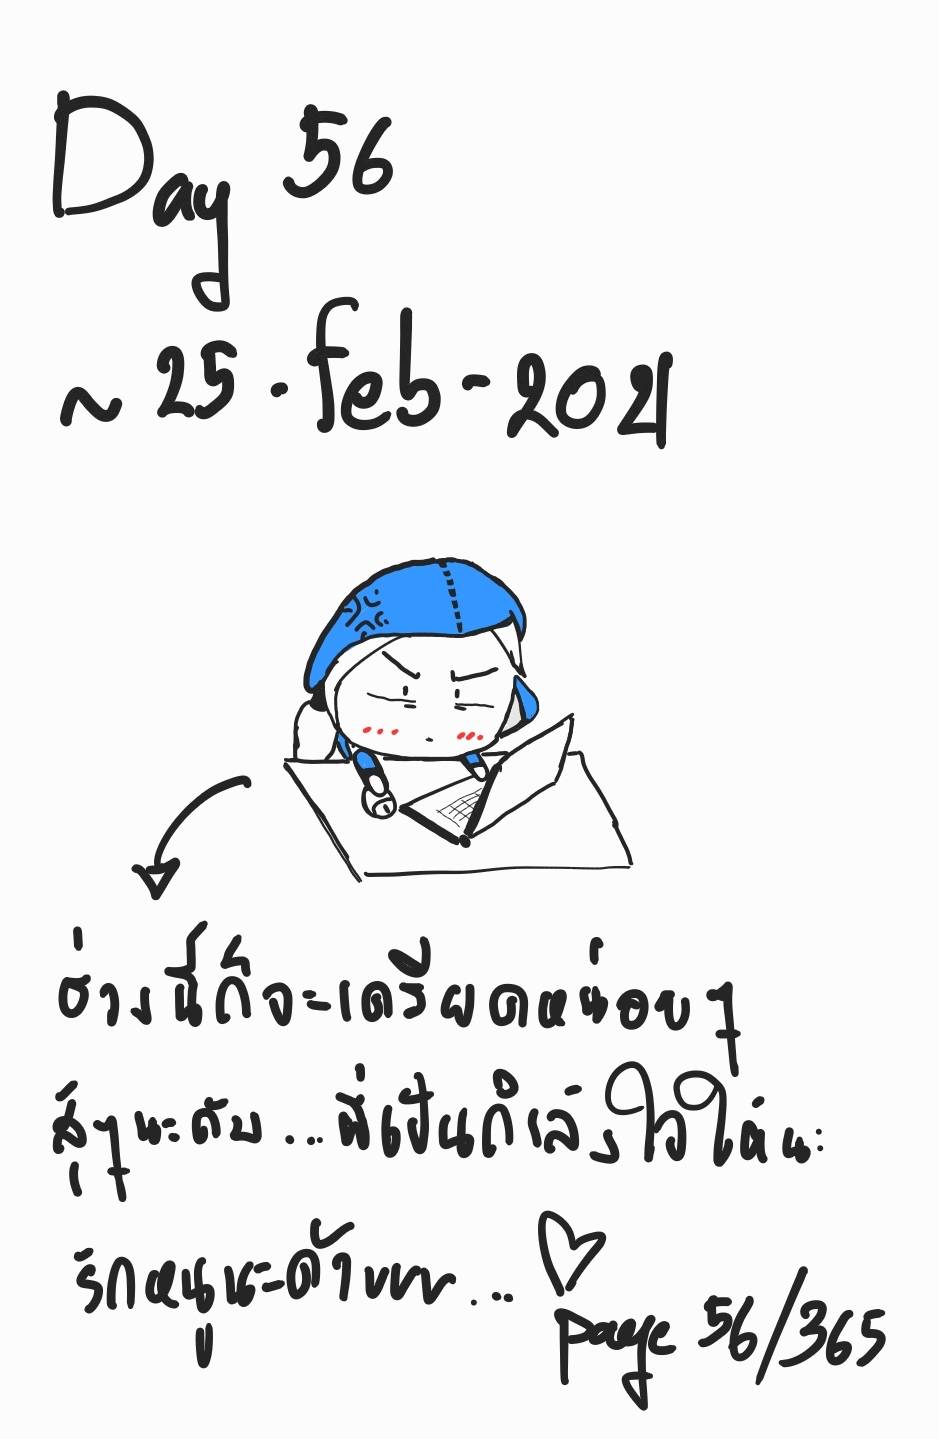 Day 56
~ 25 - feb - 2021
ช่วงนี้ก็จะเครียดหน่อยๆ
สู้ๆนะคับ... พี่เป็นกำลังใจให้นะ
รักหนูนะค้าบบบ... ♡
page 56/365